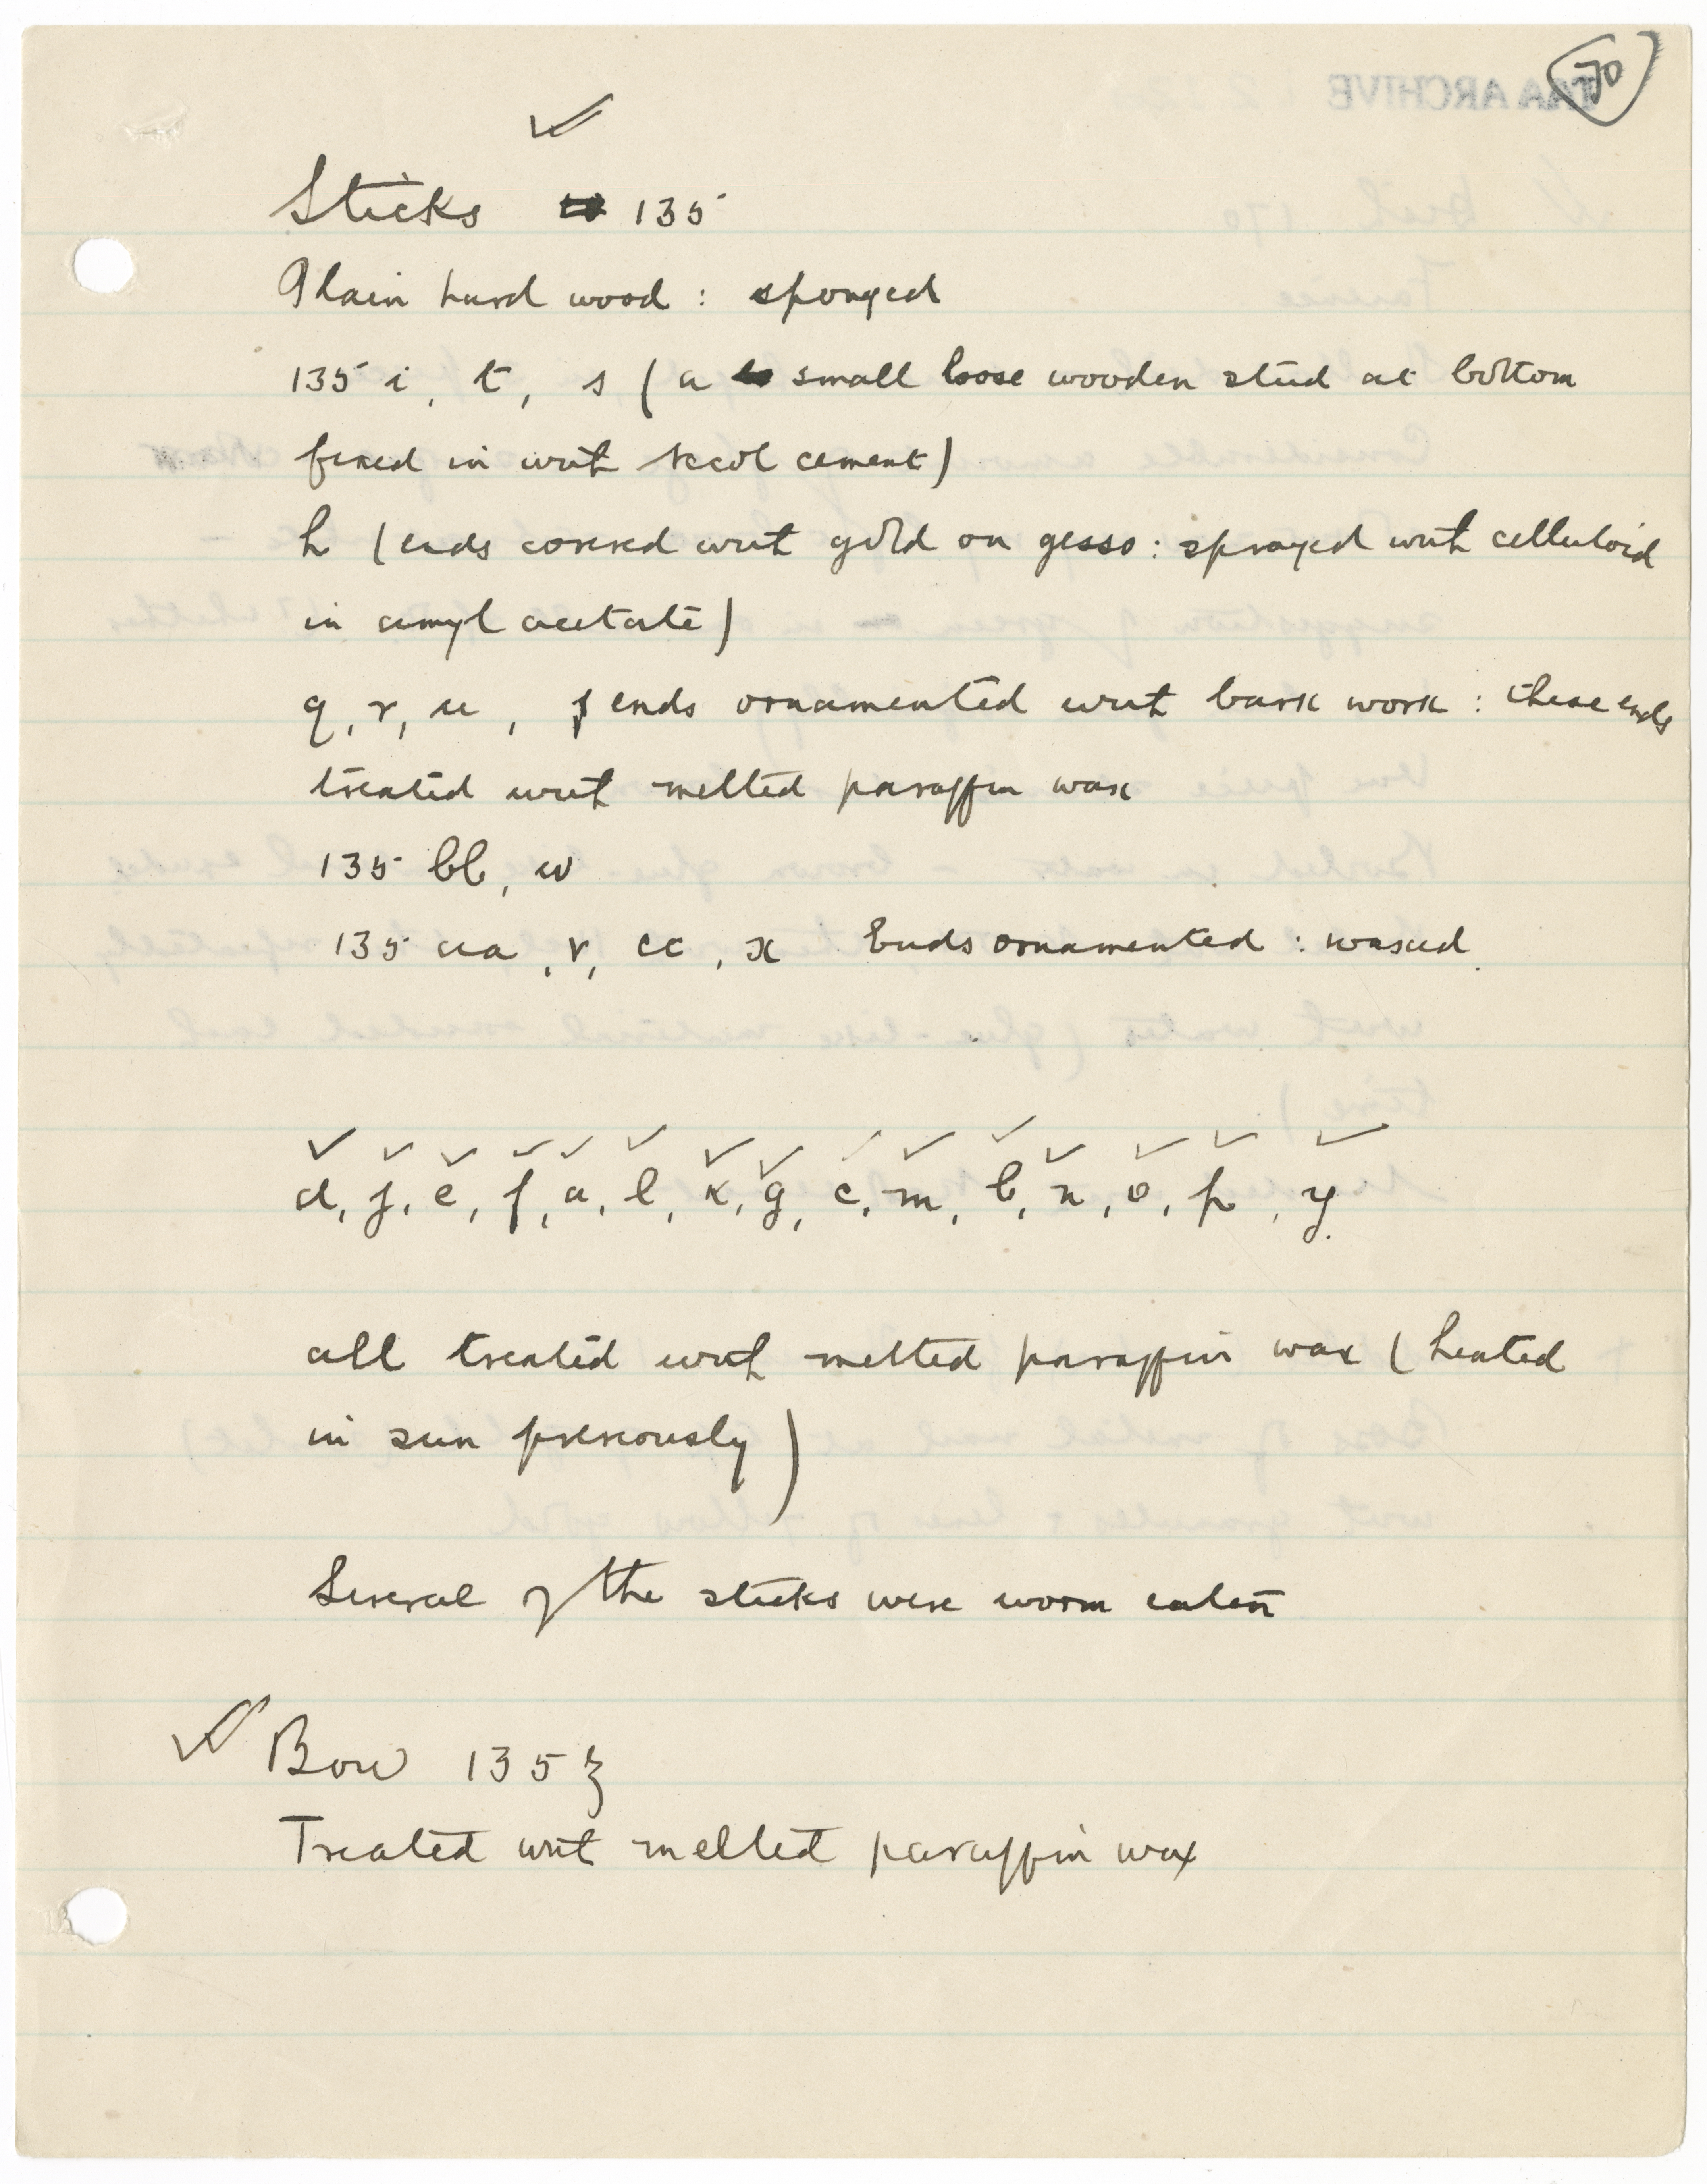 70
TAA ARCHIVE
Sticks 135
Plain hard wood : sponged
135 i, t, s (a small loose wooden stud at bottom
fixed in with seccol cement)
h (ends covered with gold on gesso : sprayed with celluloid
in amyl acetate)
q, r, u, ends ornamented with bark work : these ends
treated with melted paraffin wax
135 bb, w
135 aa, v, cc, x Ends ornamented : waxed.
d, j, e, f, a, l, k, g, c, m, b, n, o, p, y.
all treated with melted paraffin wax (heated
in sun previously)
Several of the sticks were worm eaten
Bow 135 z
Treated with melted paraffin wax